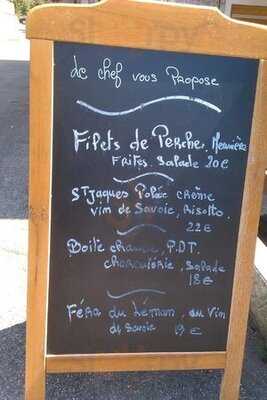 de chef vous Propose
Filets de Perche, Meunière
Frites Salade 20€
St Jaques Poléé crème
vin de Savoie, Risotto,
22€
Boite chaude, P.D.T.
charcuterie, Salade
18€
Féra du Léman, au vin
de Savoie 19€